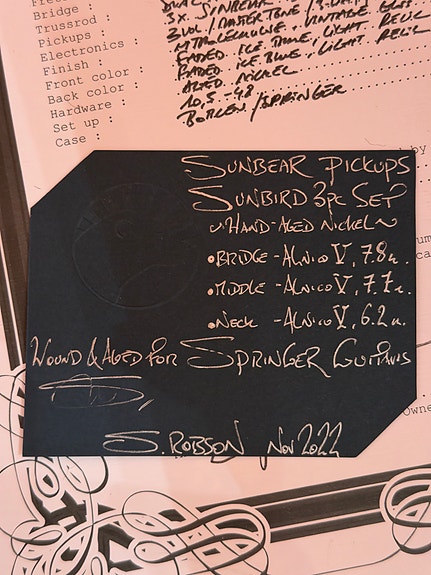 Bridge :
Trussrod :
Pickups : 3x SUNBEAR
Electronics : 3VOL / MASTER TONE /
Finish : NITROCELLULOSE, VINTAGE
Front color : FADED ICE BLUE, LIGHT RELIC
Back color : FADED ICE BLUE, LIGHT RELIC
Hardware : AGED NICKEL
Set up : 10,5-48
Case : BOTLEN / SPRINGER
by
SUNBEAR PICKUPS
SUNBIRD 3pc SET
~HAND-AGED NICKEL~
•BRIDGE - ALNICO V, 7.8K.
•MIDDLE - ALNICO V, 7.7K.
•NECK - ALNICO V, 6.2K.
WOUND & AGED FOR SPRINGER GUITARS
S. ROBSON NOV 2022